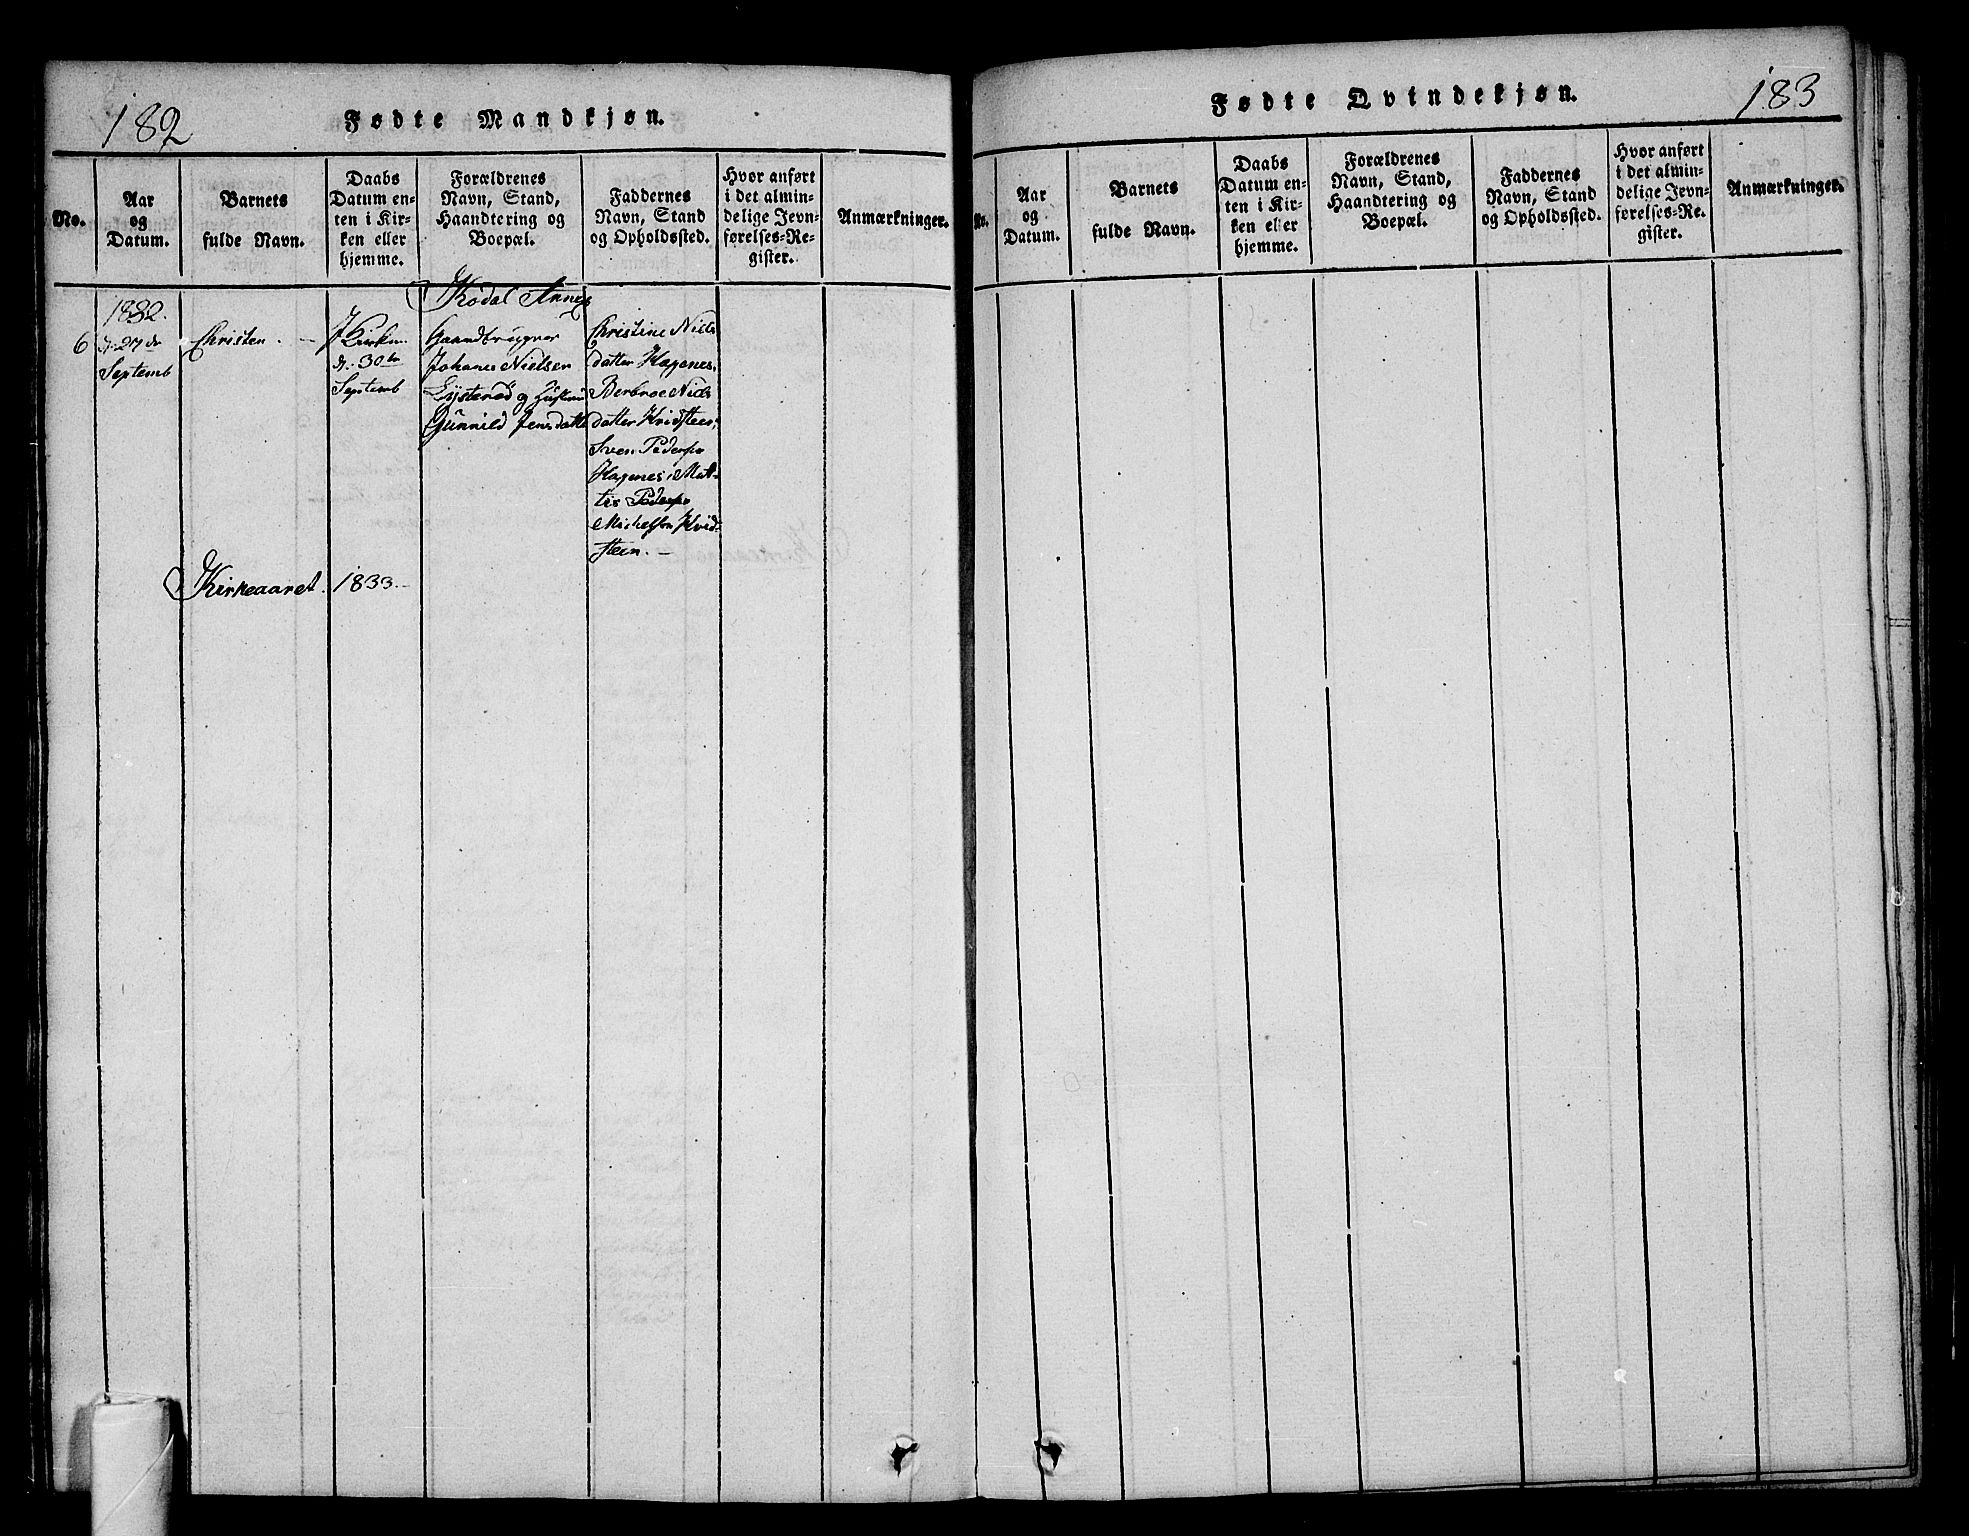 182
Fødte Mandkjøn.
No.
Aar
og
Datum.
Barnets
fulde Navn.
Daabs
Datum en-
ten i Kir-
ken eller
hjemme.
Forældrenes
Navn, Stand,
Haandtering og
Boepæl.
Faddernes
Navn, Stand
og Opholdssted.
Hvor anført
i det almin-
delige Jevn-
førelses-Re-
gister.
Anmærkninger.
Kodal Annex
6
1832.
d. 27de
Septemb
Christen. —
I Kirken
d. 30te
Septemb
Gaardbruger
Johanes Nielsen
Lysterød og Hustru
Gunnild Jensdatte
Christine Niels
datter Hagenes,
Berbroe Niels
datter Kvidsteen,
Sven Peders
Hagenes, Mat-
tis Peders
Michelsen Kvid-
steen. —
Kirkeaaret. 1833.—
Fødte Qvindekjøn.
183
No.
Aar
og
Datum.
Barnets
fulde Navn.
Daabs
Datum en-
ten i Kir-
ken eller
hjemme.
Forældrenes
Navn, Stand,
Haandtering og
Boepæl.
Faddernes
Navn, Stand
og Opholdssted.
Hvor anført
i det almin-
delige Jevn-
førelses-Re-
gister.
Anmærkninger.